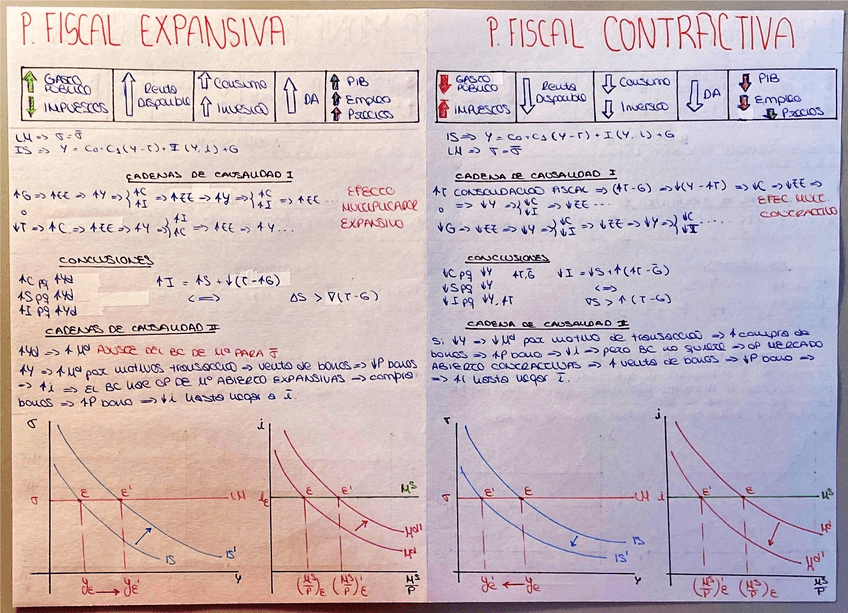 P. FISCAL EXPANSIVA
↑ GASTO PÚBLICO
↓ IMPUESTOS
↑ Renta Disponible
↑ Consumo
↑ Inversión
↑ DA
↑ PIB
↑ Empleo
↑ Precios
LM => i = ī
IS => Y = C0 + C1 (Y-T) + I (Y, i) + G
CADENAS DE CAUSALIDAD I
↑G => ↑EE => ↑Y => {↑C ↑I => ↑EE => ↑Y => {↑C ↑I => ↑EE...
o
↓T => ↑C => ↑EE => ↑Y => {↑I ↑C => ↑EE => ↑Y...
EFECTO
MULTIPLICADOR
EXPANSIVO
CONCLUSIONES
↑C pq ↑Yd
↑S pq ↑Yd
↑I pq ↑Yd
↑I = ↑S + ↓(T-↑G)
<=>
ΔS > ∇(T-G)
CADENAS DE CAUSALIDAD II
↑Yd => ↑Mᵈ AJUSTE DEL BC DE Mº PARA ī
↑Y => ↑Mᵈ por motivos transacción => venta de bonos => ↓P bonos
=> ↑i => EL BC HACE OP DE Mº ABIERTO EXPANSIVAS => compra
bonos => ↑P bono => ↓i hasta llegar a ī.
i
ī
E
E'
LM
IS
IS'
Y
YE → YE'
i
iE
E
E'
Mˢ
Mᵈ'
Mᵈ
(Mˢ/P)E
(Mˢ/P)'E
Mˢ/P
P. FISCAL CONTRACTIVA
↓ GASTO PÚBLICO
↑ IMPUESTOS
↓ Renta Disponible
↓ Consumo
↓ Inversión
↓ DA
↓ PIB
↓ Empleo
↓ Precios
IS => Y = C0 + C1 (Y-T) + I (Y, i) + G
LM => i = ī
CADENA DE CAUSALIDAD I
↑T CONSOLIDACIÓN FISCAL => (↑T-G) => ↓(Y-↑T) => ↓C => ↓EE =>
o => ↓Y => {↓C ↓I => ↓EE...
↓G => ↓EE => ↓Y => {↓C ↓I => ↓EE => ↓Y => {↓C ↓I ....
EFEC. MULT
CONTRACTIVO
CONCLUSIONES
↓C pq ↓Y
↓S pq ↓Y
↓I pq ↓Y, ↑T
↑T, Ḡ
↓I = ↓S + ↑(↑T-Ḡ)
<=>
∇S > ↑(T-G)
CADENA DE CAUSALIDAD II
Si ↓Y => ↓Mᵈ por motivo de transacción => ↑compra de
bonos => ↑P bono => ↓i => pero BC no quiere => OP MERCADO
ABIERTO CONTRACTIVAS => ↑ venta de bonos => ↓P bono =>
=> ↑i hasta llegar ī.
i
ī
E'
E
LM
IS
IS'
Y
YE' ← YE
i
ī
E'
E
Mˢ
Mᵈ
Mᵈ'
(Mˢ/P)'E
(Mˢ/P)E
Mˢ/P